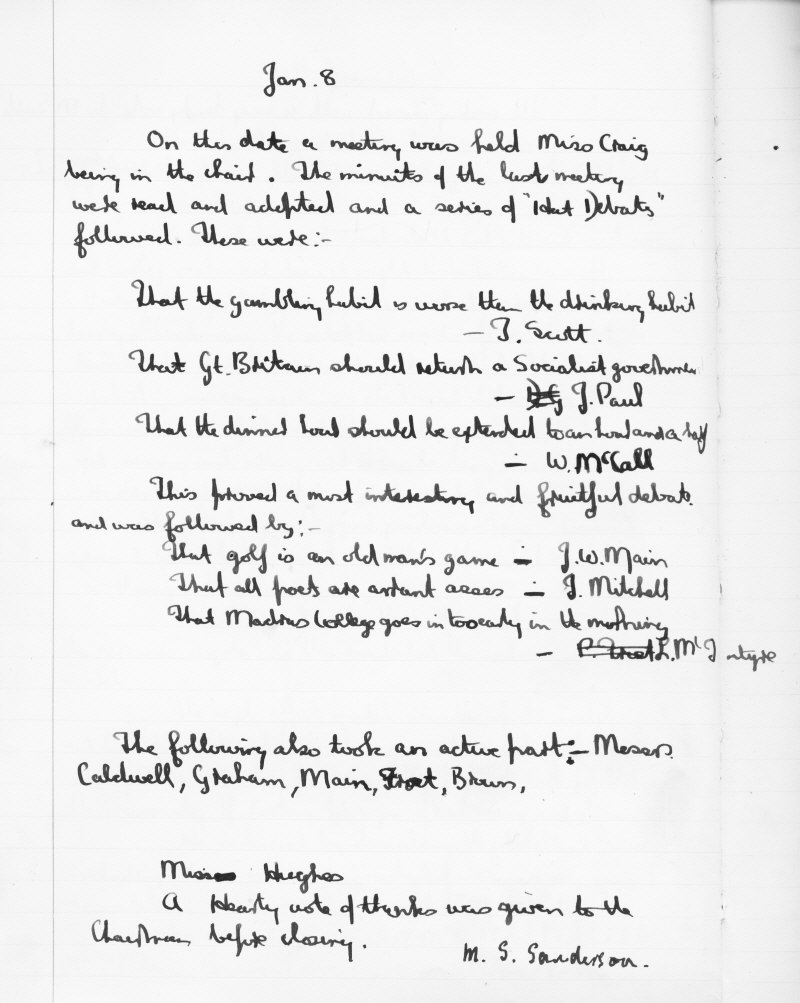 Jan. 8
On this date a meeting was held Miss Craig
being in the chair. The minuits of the last meeting
were read and adopted and a series of "Hat Debates"
followed. These were:-
That the gambling habit is worse than the drinking habit
- J. Scott.
That Gt. Britain should return a Socialist governmen
- J. Paul
That the dinner hour should be extended to an hour and a half
- W. McCall
This proved a most interesting and fruitful debate
and was followed by:-
That golf is an old man's game - J.W. Main
That all poets are arrant asses - J. Mitchell
That Madras College goes in too early in the morning
- L. McIntyre
The following also took an active part:- Messrs.
Caldwell, Graham, Main, Frost, Brown,
Miss Hughes
A Hearty vote of thanks was given to the
Chairman before closing.
M. S. Sanderson.